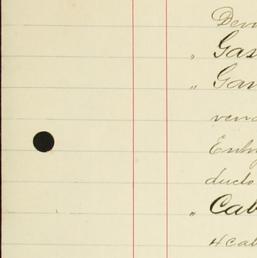 Devi
" Gas
" Gar
vend
Enha
ducts
" Cab
4 cab